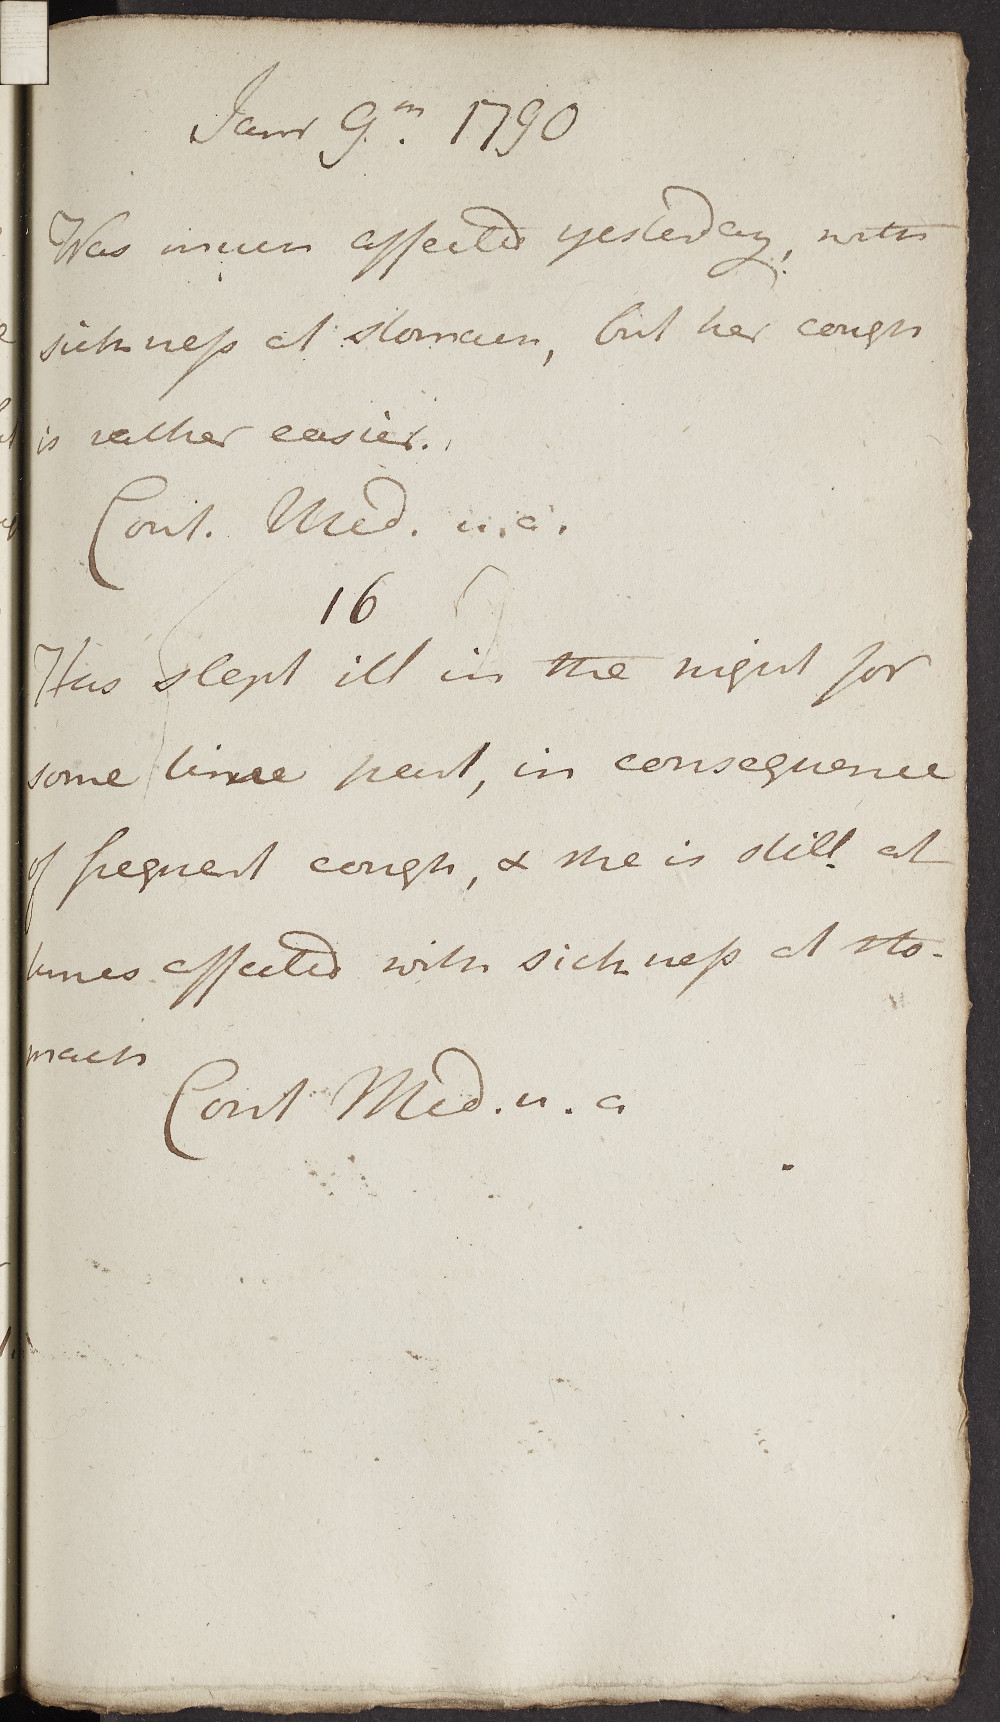 Janr 9th. 1790
Was much affected yesterday, with
sickness at stomach, but her cough
is rather easier.
Cont. Med. u.a.
16
Has slept ill in the night for
some time past, in consequence
of frequent cough, & she is still at
times affected with sickness at sto-
mach
Cont Med. u. a